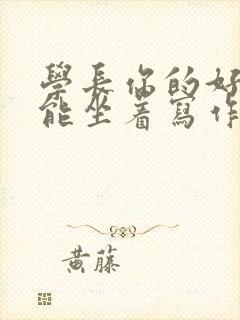 學長你的好
能坐着寫作
黄藤